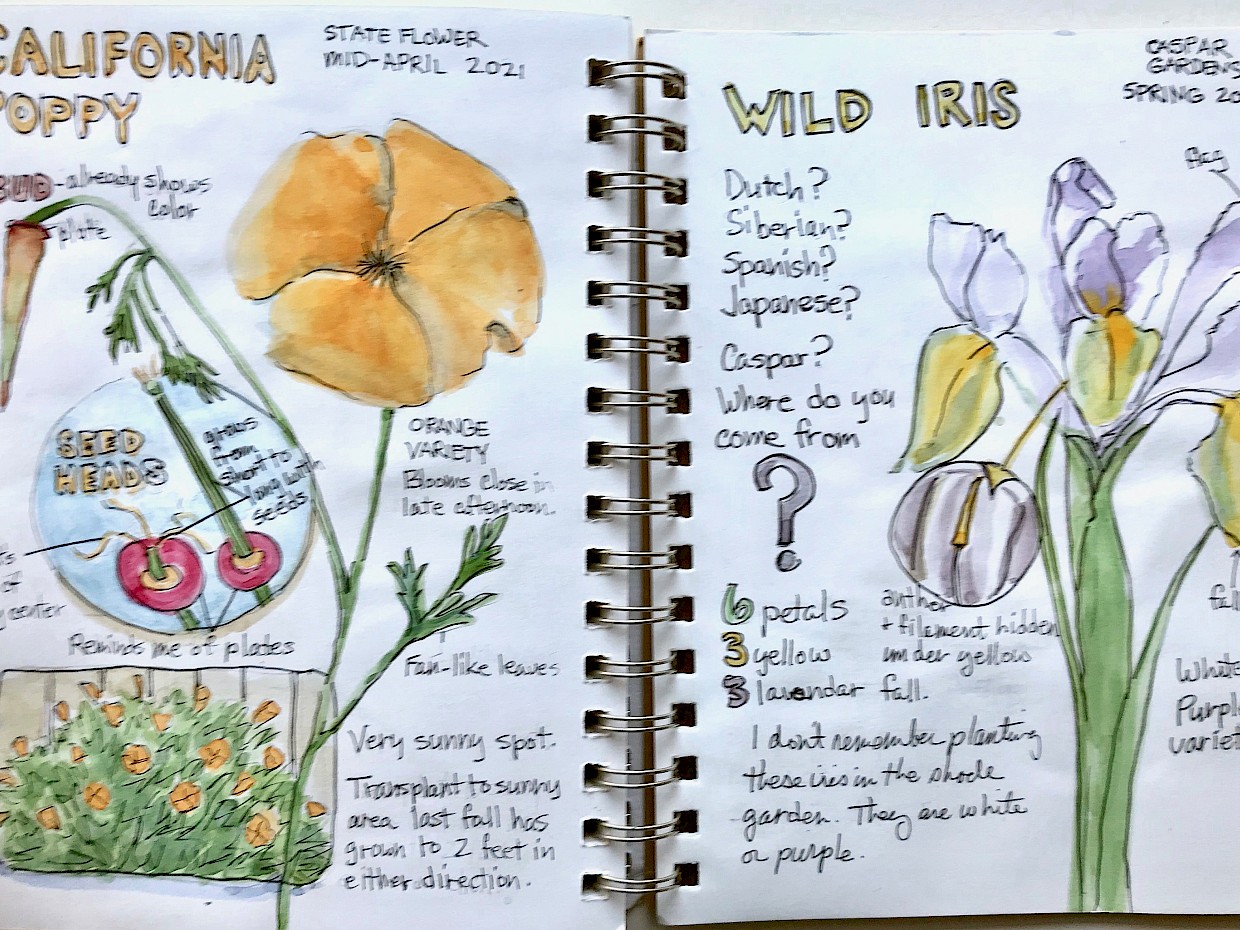 CALIFORNIA
POPPY
STATE FLOWER
MID-APRIL 2021
BUD-already shows
color
plate
SEED
HEADS
grows
from
short to
long with
seeds
of
center
Reminds me of plates
ORANGE
VARIETY
Blooms close in
late afternoon.
Fan-like leaves
Very sunny spot.
Transplant to sunny
area last fall has
grown to 2 feet in
either direction.
WILD IRIS
CASPAR
GARDENS
SPRING 20
Dutch?
Siberian?
Spanish?
Japanese?
Caspar?
Where do you
come from
?
6 petals
3 yellow
3 lavendar
flag
anther
+ filament hidden
under yellow
fall.
fall
White
Purple
variet
I don't remember planting
these iris in the shade
garden. They are white
or purple.